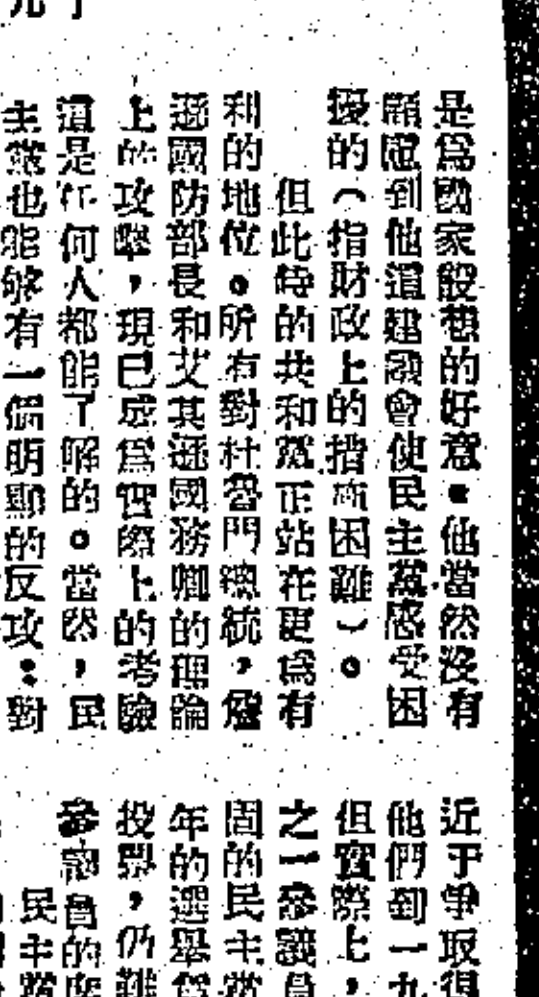 是爲國家設想的好意。他當然沒有
顧慮到他這建議會使民主黨感受困
擾的（指財政上的措施困難）。
但此時的共和黨正站在更爲有
利的地位。所有對杜魯門總統，詹
遜國防部長和艾其遜國務卿的理論
上的攻擊，現已成爲實際上的考驗
這是任何人都能了解的。當然，民
主黨也能够有一個明顯的反攻：對
近于爭取得
他們到一九
但實際上，
之一參議員
固的民主黨
年的選舉
投票，仍難
參議員的
民主黨